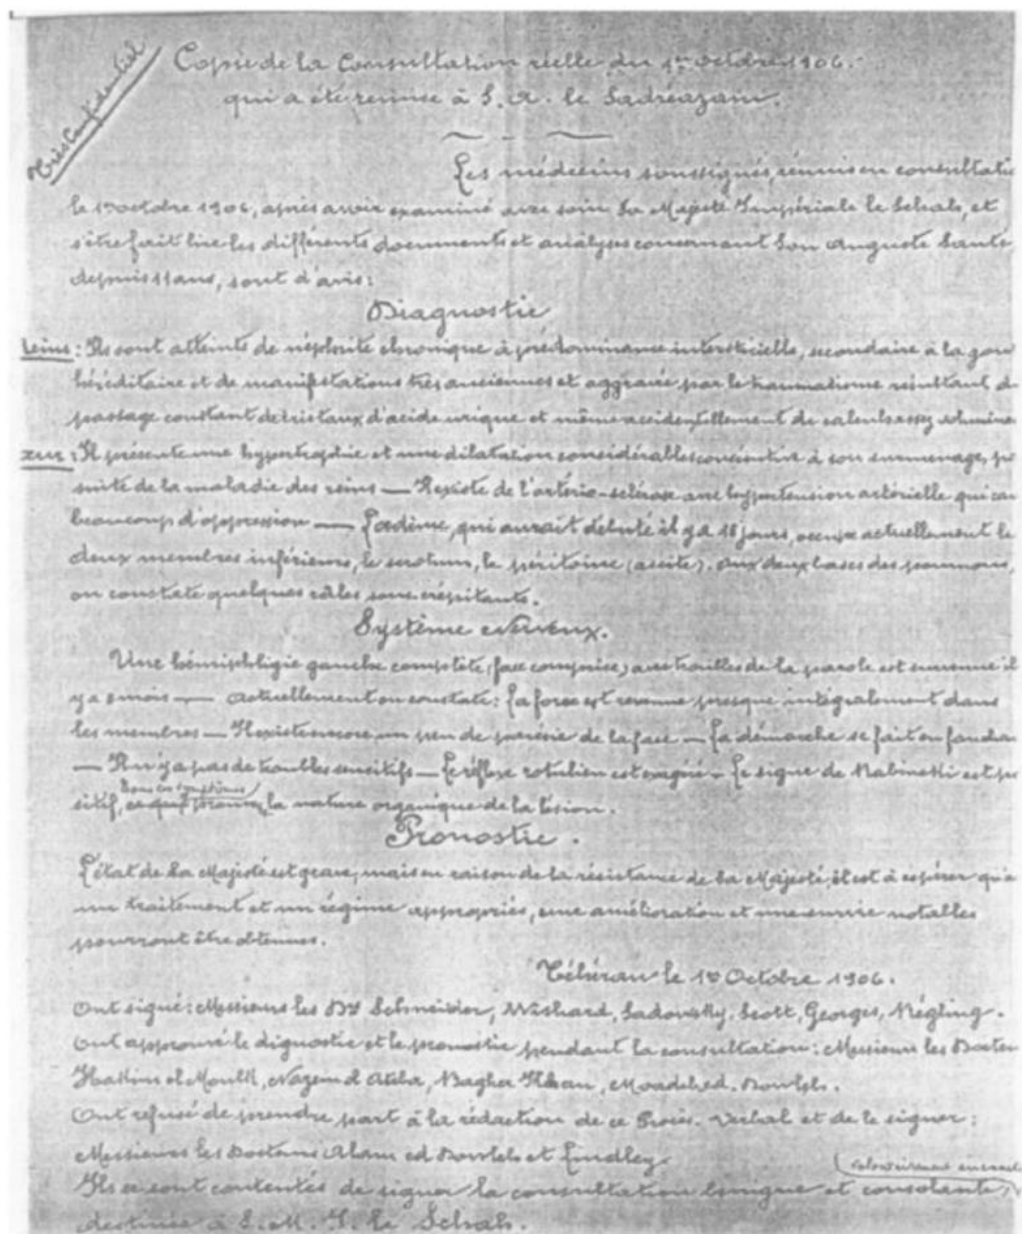 Très Confidentiel
Copie de la Consultation réelle du 1er octobre 1906.
qui a été remise à S. A. le Sadréazam.
Les médecins soussignés, réunis en consultati
le 1er octobre 1906, après avoir examiné avec soin Sa Majesté Impériale le Schah, et
s'être fait lire les différents documents et analyses concernant Son Auguste Santé
depuis ans, sont d'avis:
Diagnostic
Reins: Ils sont atteints de néphrite chronique à prédominance interstitielle, secondaire à la gou
héréditaire et de manifestations très anciennes et aggravée par le traumatisme résultant d
passage constant de cristaux d'acide urique et même accidentellement de calculs
Il présente une hypertrophie et une dilatation considérables à son surmenage, p
suite de la maladie des reins — Il existe de l'artério-sclérose avec hypertension artérielle qui cau
beaucoup d'oppression — L'œdème, qui aurait débuté il y a 15 jours, occupe actuellement le
deux membres inférieurs, le scrotum, le péritoine (ascite). Aux deux bases des poumons,
on constate quelques râles sous-crépitants.
Système Nerveux.
Une hémiplégie gauche complète (face comprise) avec troubles de la parole est survenue il
y a mois — Actuellement on constate: La force est revenue presque intégralement dans
les membres — Il existe encore un peu de parésie de la face — La démarche se fait en faucha
— Il n'y a pas de troubles sensitifs — Le réflexe rotulien est exagéré — Le signe de Babinski est po
Tous ces symptômes
sitif, la nature organique de la lésion.
Pronostic.
L'état de Sa Majesté est grave, mais en raison de la résistance de Sa Majesté, il est à espérer qu'a
un traitement et un régime appropriés, une amélioration et une survie notables
pourront être obtenues.
Téhéran le 1er Octobre 1906.
Ont signé: Messieurs les Drs Schneider, Wishard, Sadovsky, Scott, Georges,
Ont approuvé le diagnostic et le pronostic pendant la consultation: Messieurs les Docteu
Hakim el Moulk, Nazem el Atebba, Bagher Khan,
Ont refusé de prendre part à la rédaction de ce Procès-verbal et de le signer:
Messieurs les Docteurs Alam ed Dowleh et Lindley.
Ils se sont contentés de signer la consultation bénigne et consolante,
destinée à S. M. I. le Schah.